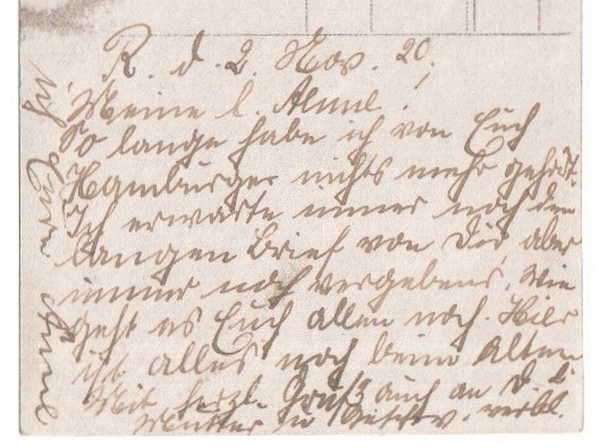 R. d. 2. Nov. 20.
Meine l. Anne!
So lange habe ich von Euch
Hamburger nichts mehr gehört.
Ich erwarte immer noch den
langen Brief von Dir, aber
immer noch vergebens. Wie
geht es Euch allen noch. Hier
ist alles noch beim Alten
Mit herzl. Gruß auch an d. l.
Mutter u. Geschw. verbl.
ich Eure Anne